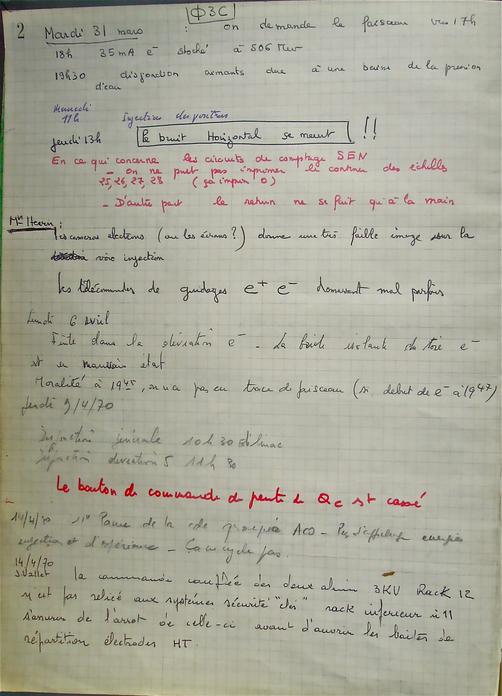 Φ3C
2 Mardi 31 mars : on demande le faisceau vers 17h
18h 35mA e- stocké à 506 Mev
19h30 disjonction aimants due à une baisse de la pression
d'eau
Mercredi
11h Injection des positrons
jeudi 13h le bruit Horizontal se meurt !!
En ce qui concerne les circuits de comptage SEN
- on ne peut pas imprimer le contenu des échelles
25, 26, 27, 28 (ça imprime 0)
- D'autre part le return ne se fait qu'à la main
:
Les cameras elections (ou les écrans?) donne une très faible image sur la
voie injection
Les télécommandes de guidages e+ e- donnent mal parfois
Lundi 6 avril
Fuite dans la déviation e- - La boite isolante du tore e-
est en mauvais état
Moralité à 19h45, on n'a pas eu trace de faisceau (si debut de e- à 19h47)
Jeudi 9/4/70
Disjonction générale 10h30
disjonction 5 11h30
Le bouton de commande de pente de Qc est cassé
14/4/70 Panne de la ACO - Pas d'affichage energies
injection et d'expérience - Ça ne cycle pas.
14/4/70
J. Vallet la commande des deux alim 3KV Rack 12
n'est pas relié aux systèmes sécurité "clés" rack inferieur à 11
s'assurer de l'arrêt de celle-ci avant d'ouvrir les boites de
répartition électrodes HT.